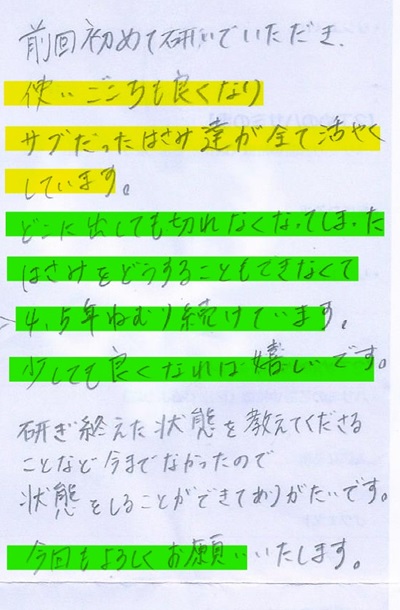 前回初めて研いでいただき、
使いごこちも良くなり
サブだったはさみ達が全て活やく
しています。
どこに出しても切れなくなってしまった
はさみをどうすることもできなくて
4,5年ねむり続けています。
少しでも良くなれば嬉しいです。
研ぎ終えた状態を教えてくださる
ことなど今までなかったので
状態をしることができてありがたいです。
今回もよろしくお願いいたします。